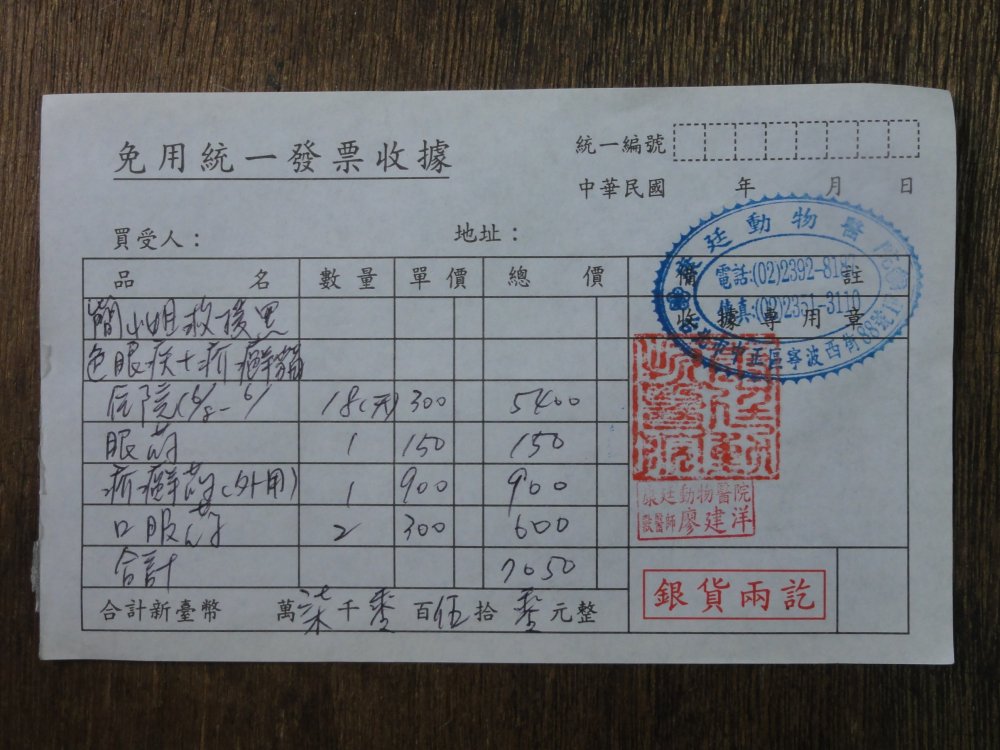 免用統一發票收據
統一編號
中華民國 年 月 日
買受人： 地址：
品 名 數量 單價 總 價 備 註
簡小姐救援黑
色眼疾+疥癬貓
住院 18(天) 300 5400
眼葯 1 150 150
疥癬葯(外用) 1 900 900
口服葯 2 300 600
合計 7050
合計新臺幣 萬柒千零百伍拾零元整
康廷動物醫院
電話:(02)2392-81
傳真:(02)2351-3110
收據專用章
市中正區寧波西街88號1
康廷動物醫院
獸醫師廖建洋
銀貨兩訖